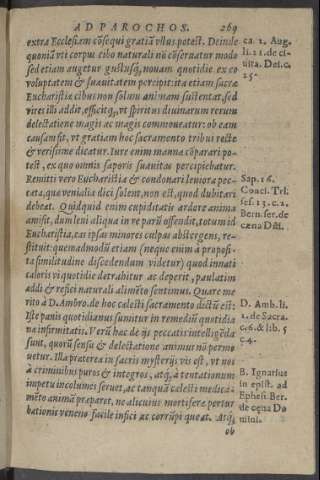 AD PAROCHOS. 269
extra Ecclesiam cõsequi gratiã vllus potest. Deinde
quoniã vti corpus cibo naturali nõ cõseruatur modo
sed etiam augetur gustusq́, nouam quotidie ex eo
voluptatem & suauitatem percipit: ita etiam sacræ
Eucharistiæ cibus non solum animam sustentat, sed
vires illi addit, efficitq́, vt spiritus diuinarum rerum
delectatione magis ac magis commoueatur: ob eam
causam fit, vt gratiam hoc sacramento tribui recte
& verissime dicatur. Iure enim manna cõparari po-
test, ex quo omnis saporis suauitas percipiebatur.
Remitti vero Eucharistia & condonari leuiora pec-
cata, quæ venialia dici solent, non est, quod dubitari
debeat. Quidquid enim cupiditatis ardore anima
amisit, dum leui aliqua in re parũ offendit, totum id
Eucharistia, eas ipsas minores culpas abstergens, re-
stituit: quemadmodũ etiam (neque enim a proposi-
ta similitudine discedendum videtur) quod innati
caloris vi quotidie detrahitur ac deperit, paulatim
addi & refici naturali alimẽto sentimus. Quare me
rito à D. Ambro. de hoc cælesti sacramento dictũ est:
Iste panis quotidianus sumitur in remediũ quotidia
næ infirmitatis. Verũ hæc de ijs peccatis intelligẽda
sunt, quorũ sensu & delectatione animus nũ permo
uetur. Illa præterea in sacris mysterijs vis est, vt nos
à criminibus puros & integros, atq́, à tentationum
impetu incolumes seruet, ac tamquã cælesti medica-
mẽto animã præparet, ne alicuius mortiferæ pertur
bationis veneno facile infici ac corrũpi queat. Atq́,
ob
ca. 2. Aug.
li. 21. de ci-
uita. Dei. c.
25.
Sap. 16.
Conci. Tri.
ses. 13. c. 2.
Bern. ser. de
cæna Dñi.
D. Amb. li.
1. de Sacra.
c. 6. & lib. 5
c. 4.
B. Ignatius
in epist. ad
Ephes. Ber.
de cęna Do
mini.